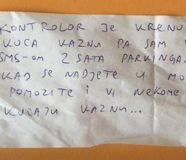 KONTROLOR JE KRENUO
KUCA KAZNU PA SAM
SMS-OM 2 SATA PARKINGA.
KAD SE NADJETE U
POMOZITE I VI NEKOME
KUCAJU KAZNU...